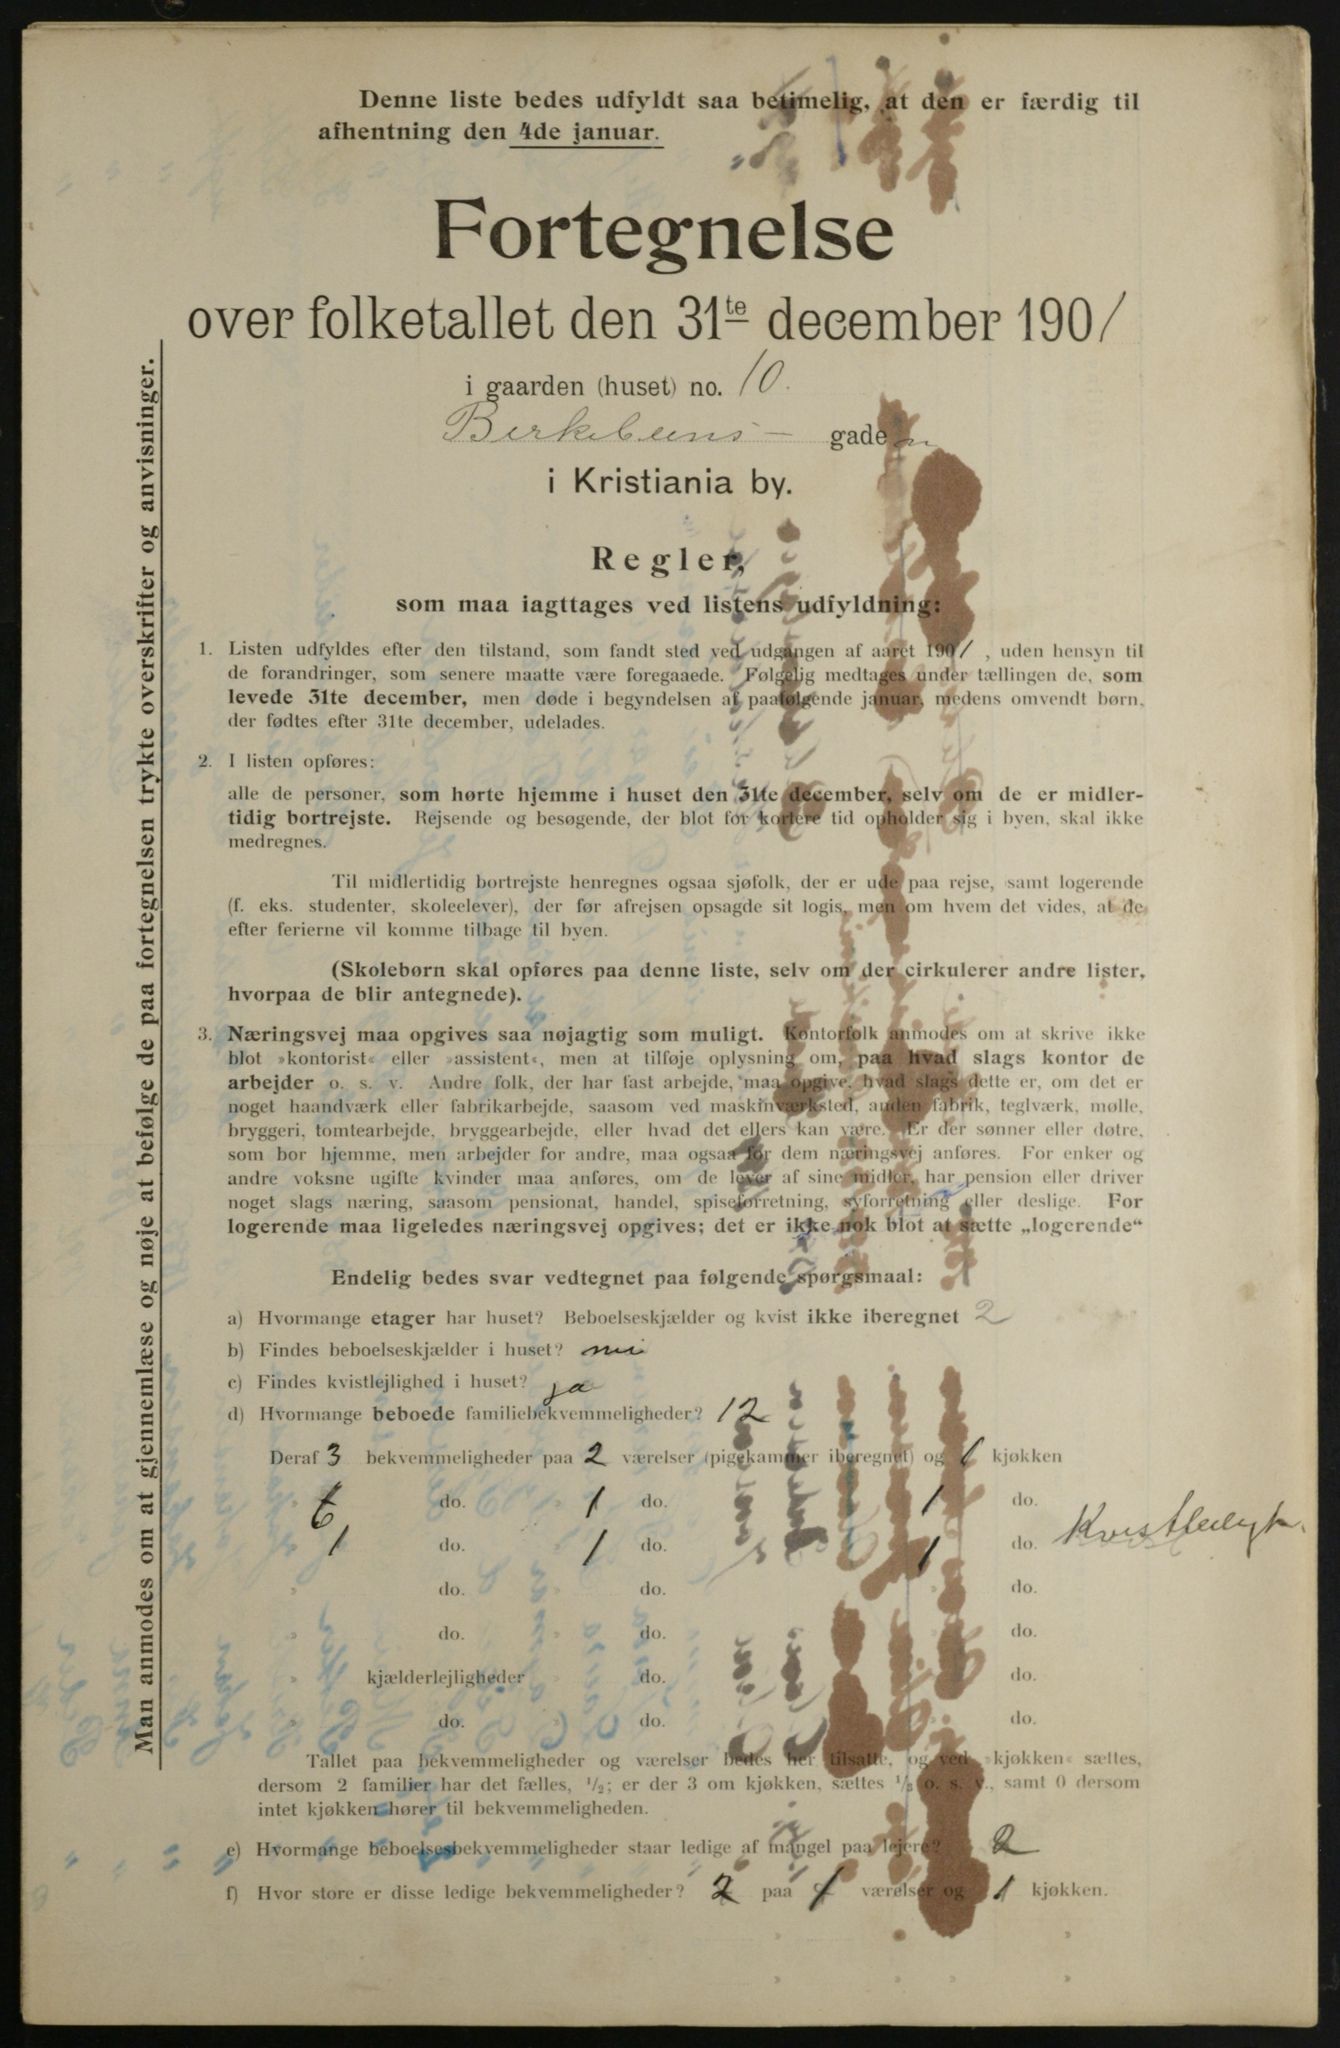 Denne liste bedes udfyldt saa betimelig, at den er færdig til
afhentning den 4de januar.
Fortegnelse
over folketallet den 31te december 1901
i gaarden (huset) no. 10.
Birkebeins- gaden
i Kristiania by.
Regler,
som maa iagttages ved listens udfyldning:
1. Listen udfyldes efter den tilstand, som fandt sted ved udgangen af aaret 1901, uden hensyn til
de forandringer, som senere maatte være foregaaede. Følgelig medtages under tællingen de, som
levede 31te december, men døde i begyndelsen af paafølgende januar, medens omvendt børn,
der fødtes efter 31te december, udelades.
2. I listen opføres:
alle de personer, som hørte hjemme i huset den 31te december, selv om de er midler-
tidig bortrejste. Rejsende og besøgende, der blot for kortere tid opholder sig i byen, skal ikke
medregnes.
Til midlertidig bortrejste henregnes ogsaa sjøfolk, der er ude paa rejse, samt logerende
(f. eks. studenter, skoleelever), der før afrejsen opsagde sit logis, men om hvem det vides, at de
efter ferierne vil komme tilbage til byen.
(Skolebørn skal opføres paa denne liste, selv om der cirkulerer andre lister,
hvorpaa de blir antegnede).
3. Næringsvej maa opgives saa nøjagtig som muligt. Kontorfolk anmodes om at skrive ikke
blot »kontorist« eller »assistent«, men at tilføje oplysning om, paa hvad slags kontor de
arbejder o. s. v. Andre folk, der har fast arbejde, maa opgive, hvad slags dette er, om det er
noget haandværk eller fabrikarbejde, saasom ved maskinværksted, anden fabrik, teglværk, mølle,
bryggeri, tomtearbejde, bryggearbejde, eller hvad det ellers kan være. Er der sønner eller døtre,
som bor hjemme, men arbejder for andre, maa ogsaa for dem næringsvej anføres. For enker og
andre voksne ugifte kvinder maa anføres, om de lever af sine midler, har pension eller driver
noget slags næring, saasom pensionat, handel, spiseforretning, syforretning eller deslige. For
logerende maa ligeledes næringsvej opgives; det er ikke nok blot at sætte „logerende“
Endelig bedes svar vedtegnet paa følgende spørgsmaal:
a) Hvormange etager har huset? Beboelseskjælder og kvist ikke iberegnet 2
b) Findes beboelseskjælder i huset? nei
c) Findes kvistlejlighed i huset? ja
d) Hvormange beboede familiebekvemmeligheder? 12
Deraf 3 bekvemmeligheder paa 2 værelser (pigekammer iberegnet) og 1 kjøkken
6 do. 1 do. 1 do.
1 do. 1 do. 1 do. Kvistleiligh.
do. do. do.
do. do. do.
kjælderlejligheder do. do.
do. do. do.
Tallet paa bekvemmeligheder og værelser bedes her tilsatte, og ved »kjøkken« sættes,
dersom 2 familier har det fælles, 1/2; er der 3 om kjøkken, sættes 1/3 o. s. v., samt 0 dersom
intet kjøkken hører til bekvemmeligheden.
e) Hvormange beboelsesbekvemmeligheder staar ledige af mangel paa lejere? 2
f) Hvor store er disse ledige bekvemmeligheder? 2 paa 1 værelser og 1 kjøkken.
Man anmodes om at gjennemlæse og nøje at befølge de paa fortegnelsen trykte overskrifter og anvisninger.